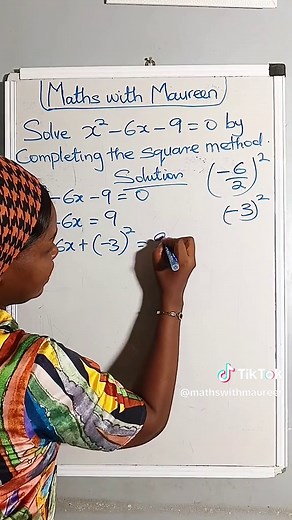 Maths with Maureen
Solve x² - 6x - 9 = 0 by
Completing the square method.
Solution
(-6/2)²
-6x - 9 = 0
-6x = 9
(-3)²
6x + (-3)² =
TikTok
@mathswithmaureen